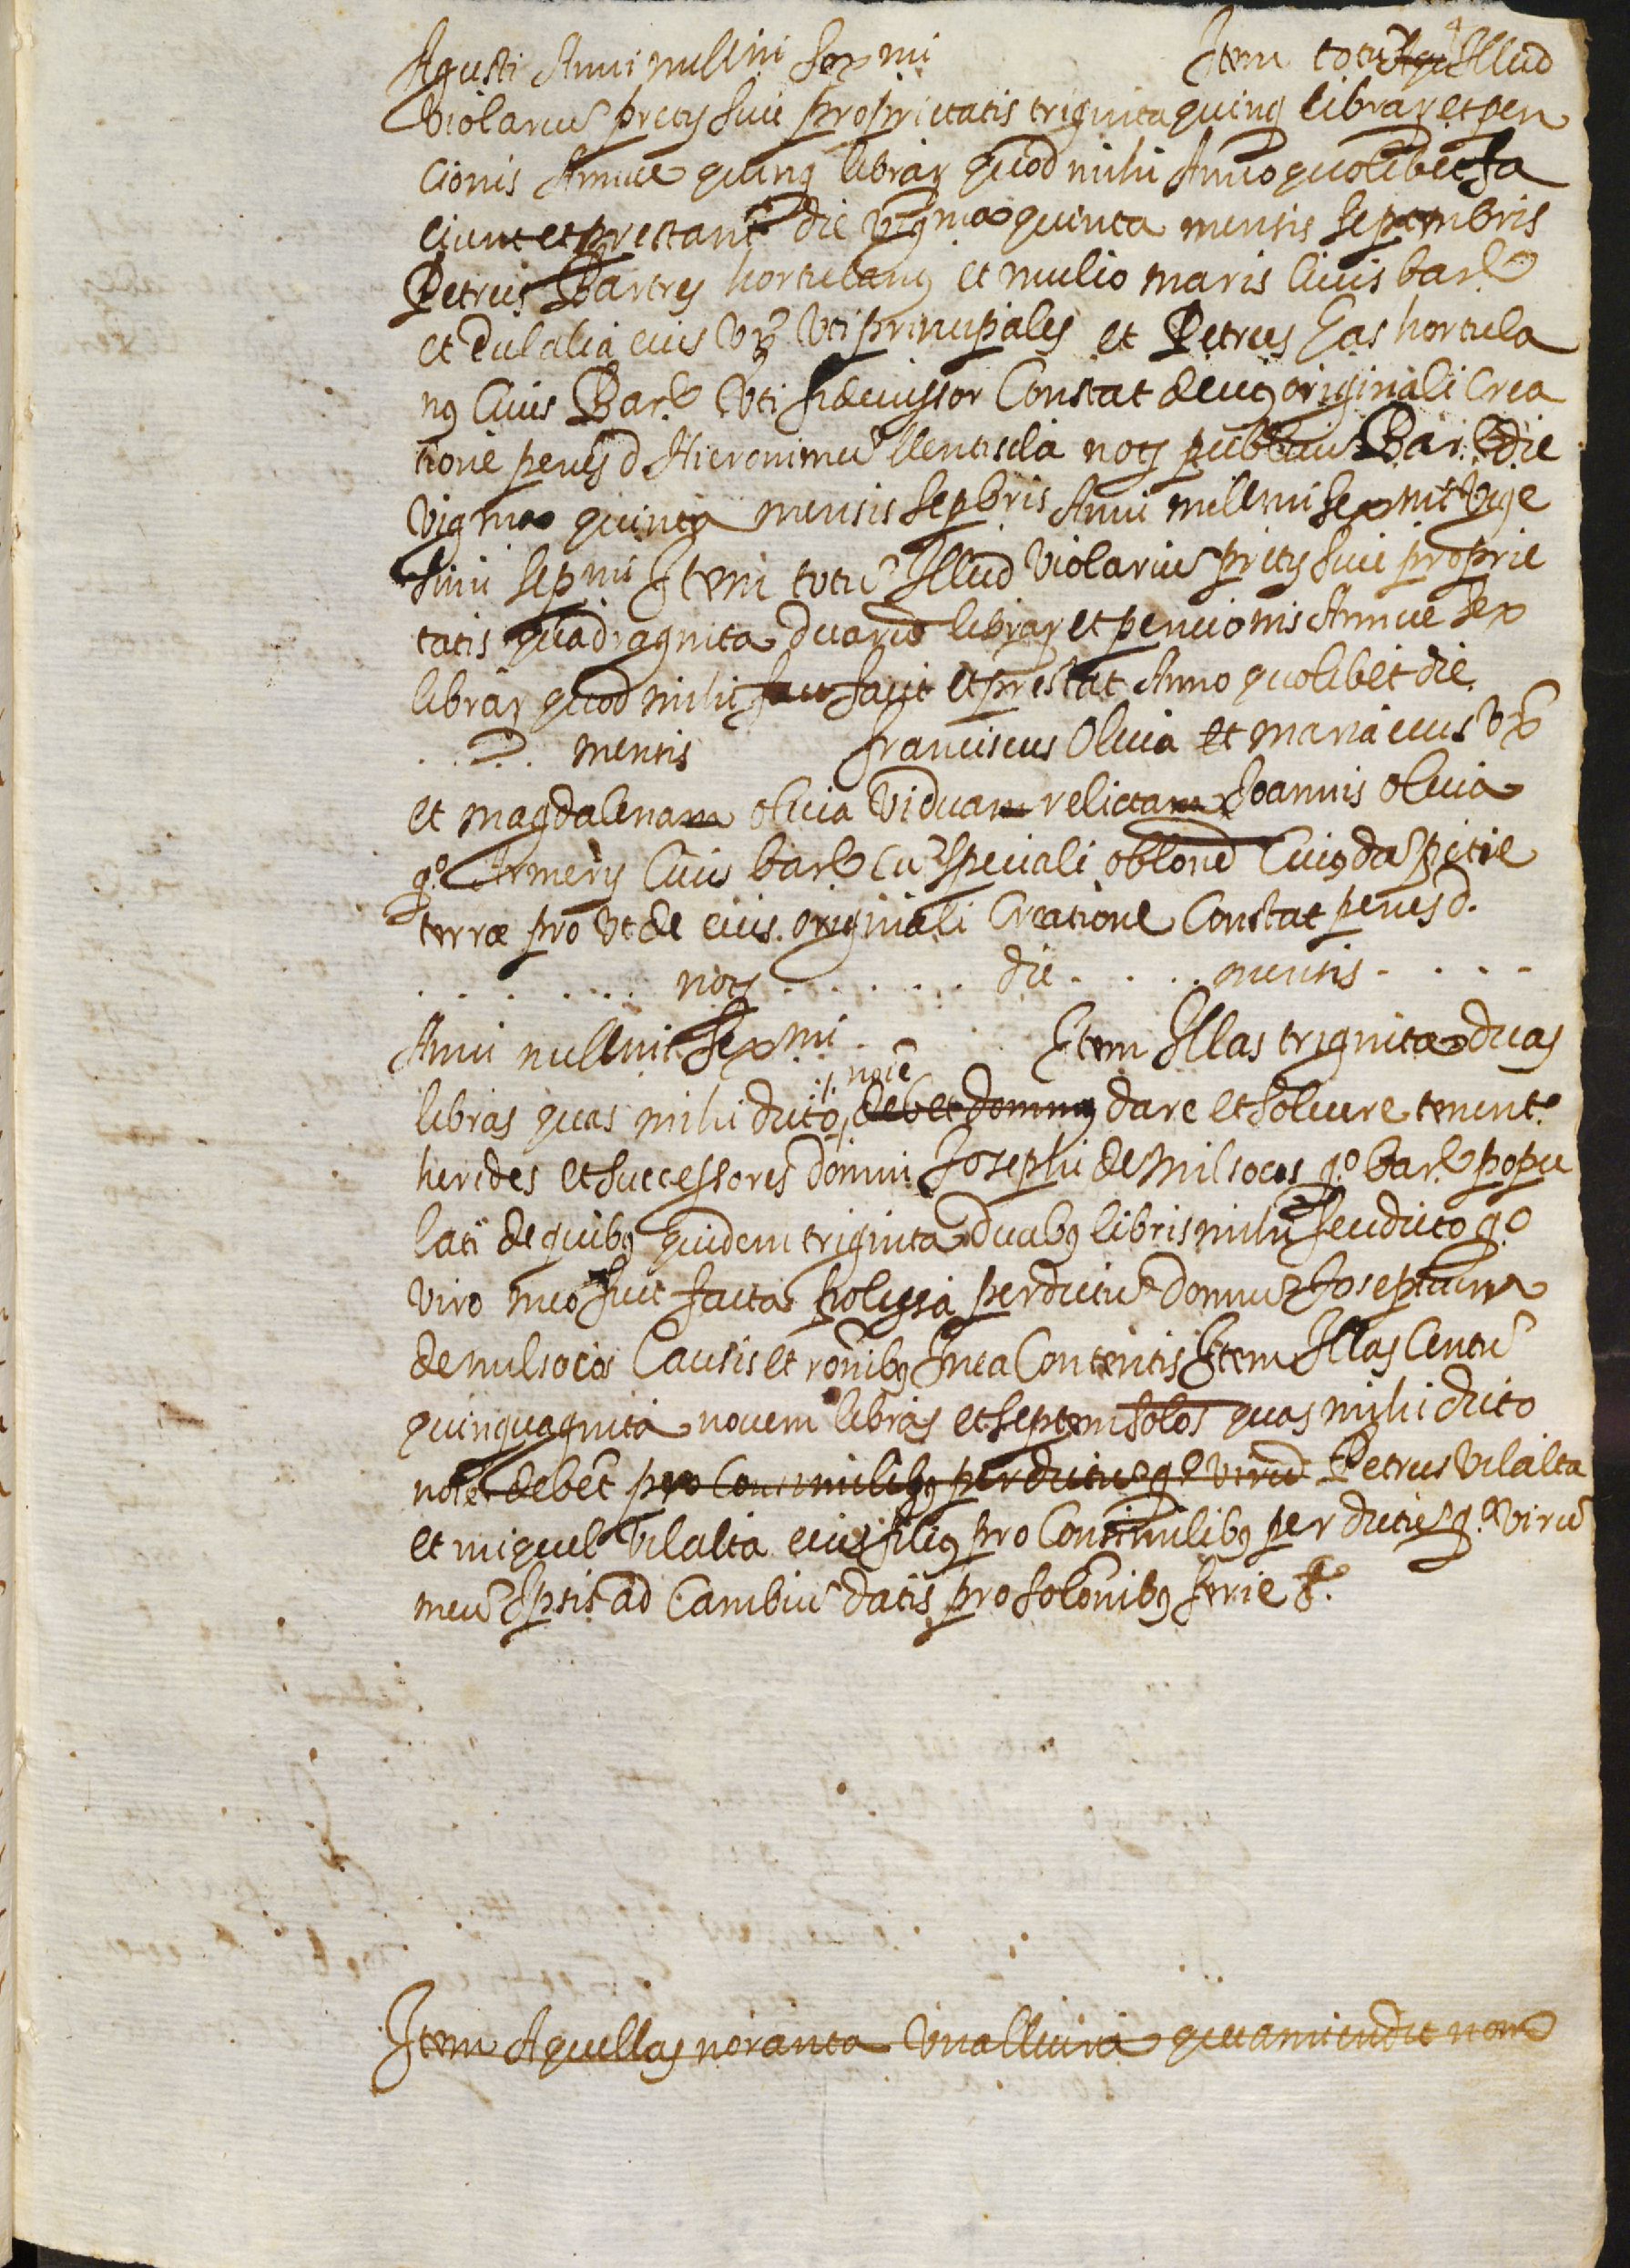 Agusti Anni millmi sexmi Item totũ Illud
violariũ precÿ sue proprietatis triginta quinq librar et pen
cionis Annue quinq librar quod mihi Anno quolibet fa
ciunt et prestant die vigma quinta mensis septembris
Petrus Bartres hortulanq et mulio maris civis barl
et Eulalia eius Vx Uti principales et Petrus Gas hortula
nq Civis Barl Uti fideiussor Constat de eiq originali Crea
tione penes d Hieronimũ llentiscla notÿ publicũ Bar. die
vigma quinta mensis Sepbris Anni millmi sexmi Vige
simi sepmi Item totũ Illud Violariũ pretÿ sue proprie
tatis quadraginta duarũ librar et pencionis Annue sex
librar quod mihi facit et prestat Anno quolibet die
. . . . mensis franciscus Oliuia et maria eius Vx
et magdalenam oliuia Viduam relictam Joannis oliuia
qº. Armerÿ Civis barl Cũ speciali oblone Cuiqda petie
terræ pro Vt de eius originali Creatione Constat penes d.
. . . . . . notÿ . . . . . . die . . . . mensis . . . .
Anni millmi Sexmi . . . Item Illas triginta duas
noie
libras quas mihi dicto debet domnq dare et soluere tenent.
heredes et successores domni Josephi de Milsocos qº. barl popu
lati de quibq quidem triginta duabq libris mihi seu dicto qº
viro meo fuit facta polissa per dictũ domnũ Josephum
de milsocos Causis et ronibq In ea Contentis Item Illas Centũ
quinquaginta novem libras et septem solos quas mihi dicto
noie debet pro Consimilibq per dictũ qº virũ Petrus Vilalta
et miquel Vilalta eius filiq pro Consimilibq per dictũ qº. virũ
meũ Ipsis ad Cambiũ datis pro solonibq ferie &.
Item Aquellas noranta